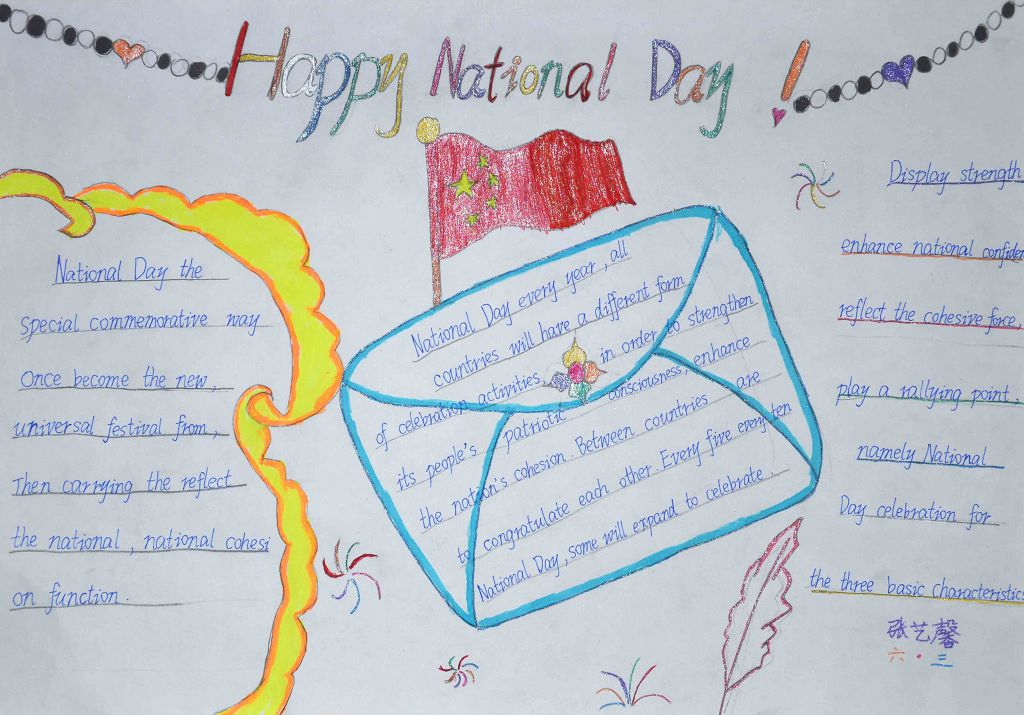 Happy National Day !
National Day the
special commemorative way
Once become the new,
universal festival from,
Then carrying the reflect
the national, national cohesi
on function.
National Day every year, all
countries will have a different form
of celebration activities, in order to strengthen
its people's patriotic consciousness, enhance
the nation's cohesion. Between countries are
to congratulate each other. Every five every ten
National Day, some will expand to celebrate.
Display strength
enhance national confiden
reflect the cohesive force,
play a rallying point,
namely National
Day celebration for
the three basic characteristics
张艺馨
六·三